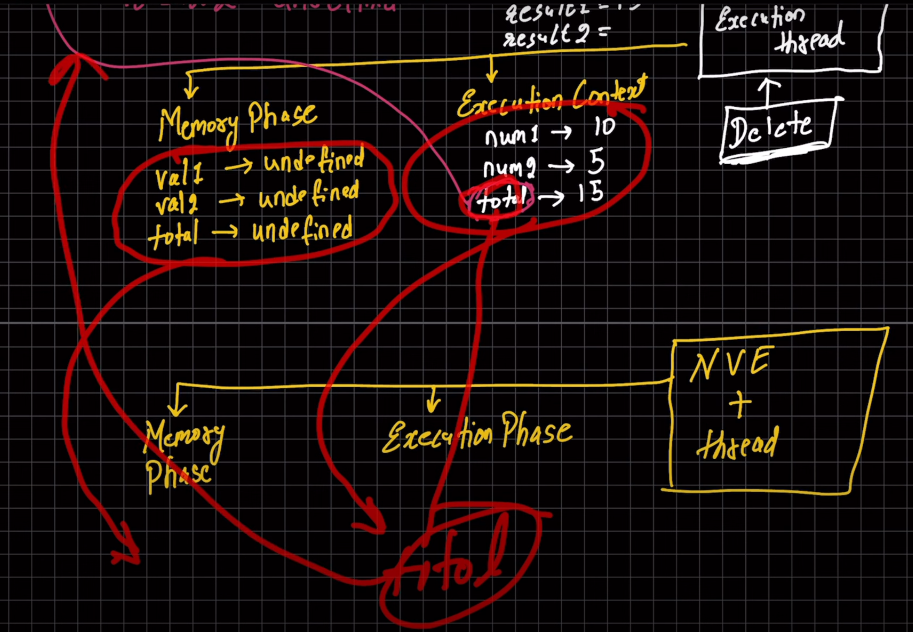 result2 =
Execution
thread
Delete
Memory Phase
val1 → undefined
val2 → undefined
total → undefined
Execution Context
num1 → 10
num2 → 5
total → 15
NVE
+
thread
Memory
Phase
Execution Phase
total